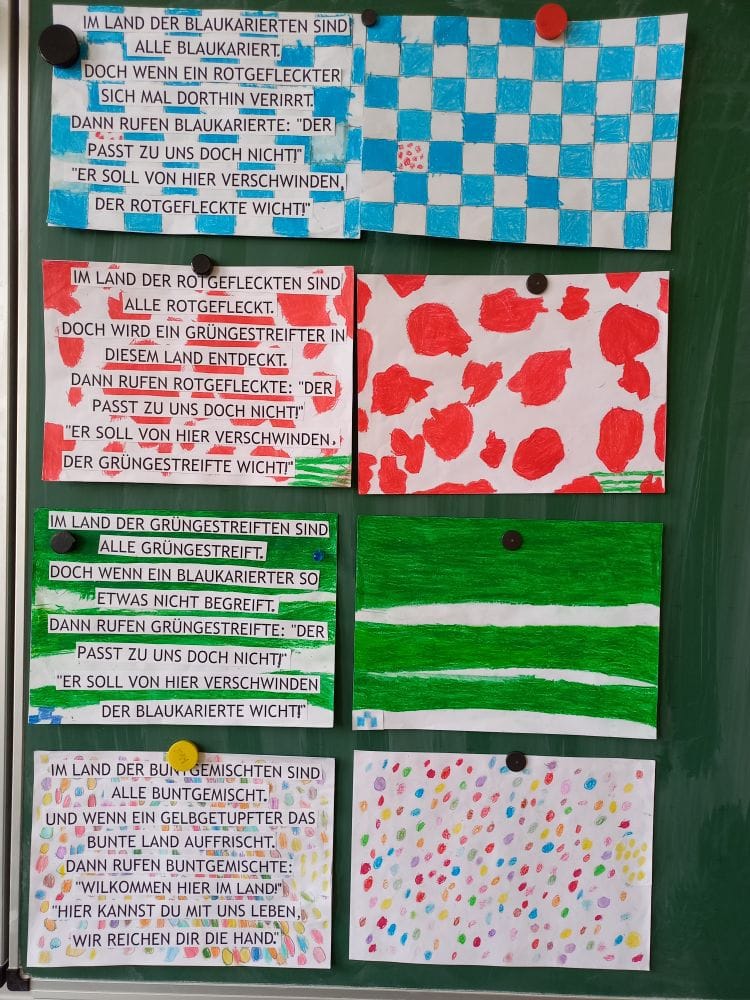 IM LAND DER BLAUKARIERTEN SIND
ALLE BLAUKARIERT.
DOCH WENN EIN ROTGEFLECKTER
SICH MAL DORTHIN VERIRRT.
DANN RUFEN BLAUKARIERTE: "DER
PASST ZU UNS DOCH NICHT!"
"ER SOLL VON HIER VERSCHWINDEN,
DER ROTGEFLECKTE WICHT!"
IM LAND DER ROTGEFLECKTEN SIND
ALLE ROTGEFLECKT.
DOCH WIRD EIN GRÜNGESTREIFTER IN
DIESEM LAND ENTDECKT.
DANN RUFEN ROTGEFLECKTE: "DER
PASST ZU UNS DOCH NICHT!"
"ER SOLL VON HIER VERSCHWINDEN,
DER GRÜNGESTREIFTE WICHT!"
IM LAND DER GRÜNGESTREIFTEN SIND
ALLE GRÜNGESTREIFT.
DOCH WENN EIN BLAUKARIERTER SO
ETWAS NICHT BEGREIFT.
DANN RUFEN GRÜNGESTREIFTE: "DER
PASST ZU UNS DOCH NICHT!"
"ER SOLL VON HIER VERSCHWINDEN
DER BLAUKARIERTE WICHT!"
IM LAND DER BUNTGEMISCHTEN SIND
ALLE BUNTGEMISCHT.
UND WENN EIN GELBGETUPFTER DAS
BUNTE LAND AUFFRISCHT.
DANN RUFEN BUNTGEMISCHTE:
"WILKOMMEN HIER IM LAND!"
"HIER KANNST DU MIT UNS LEBEN,
WIR REICHEN DIR DIE HAND."